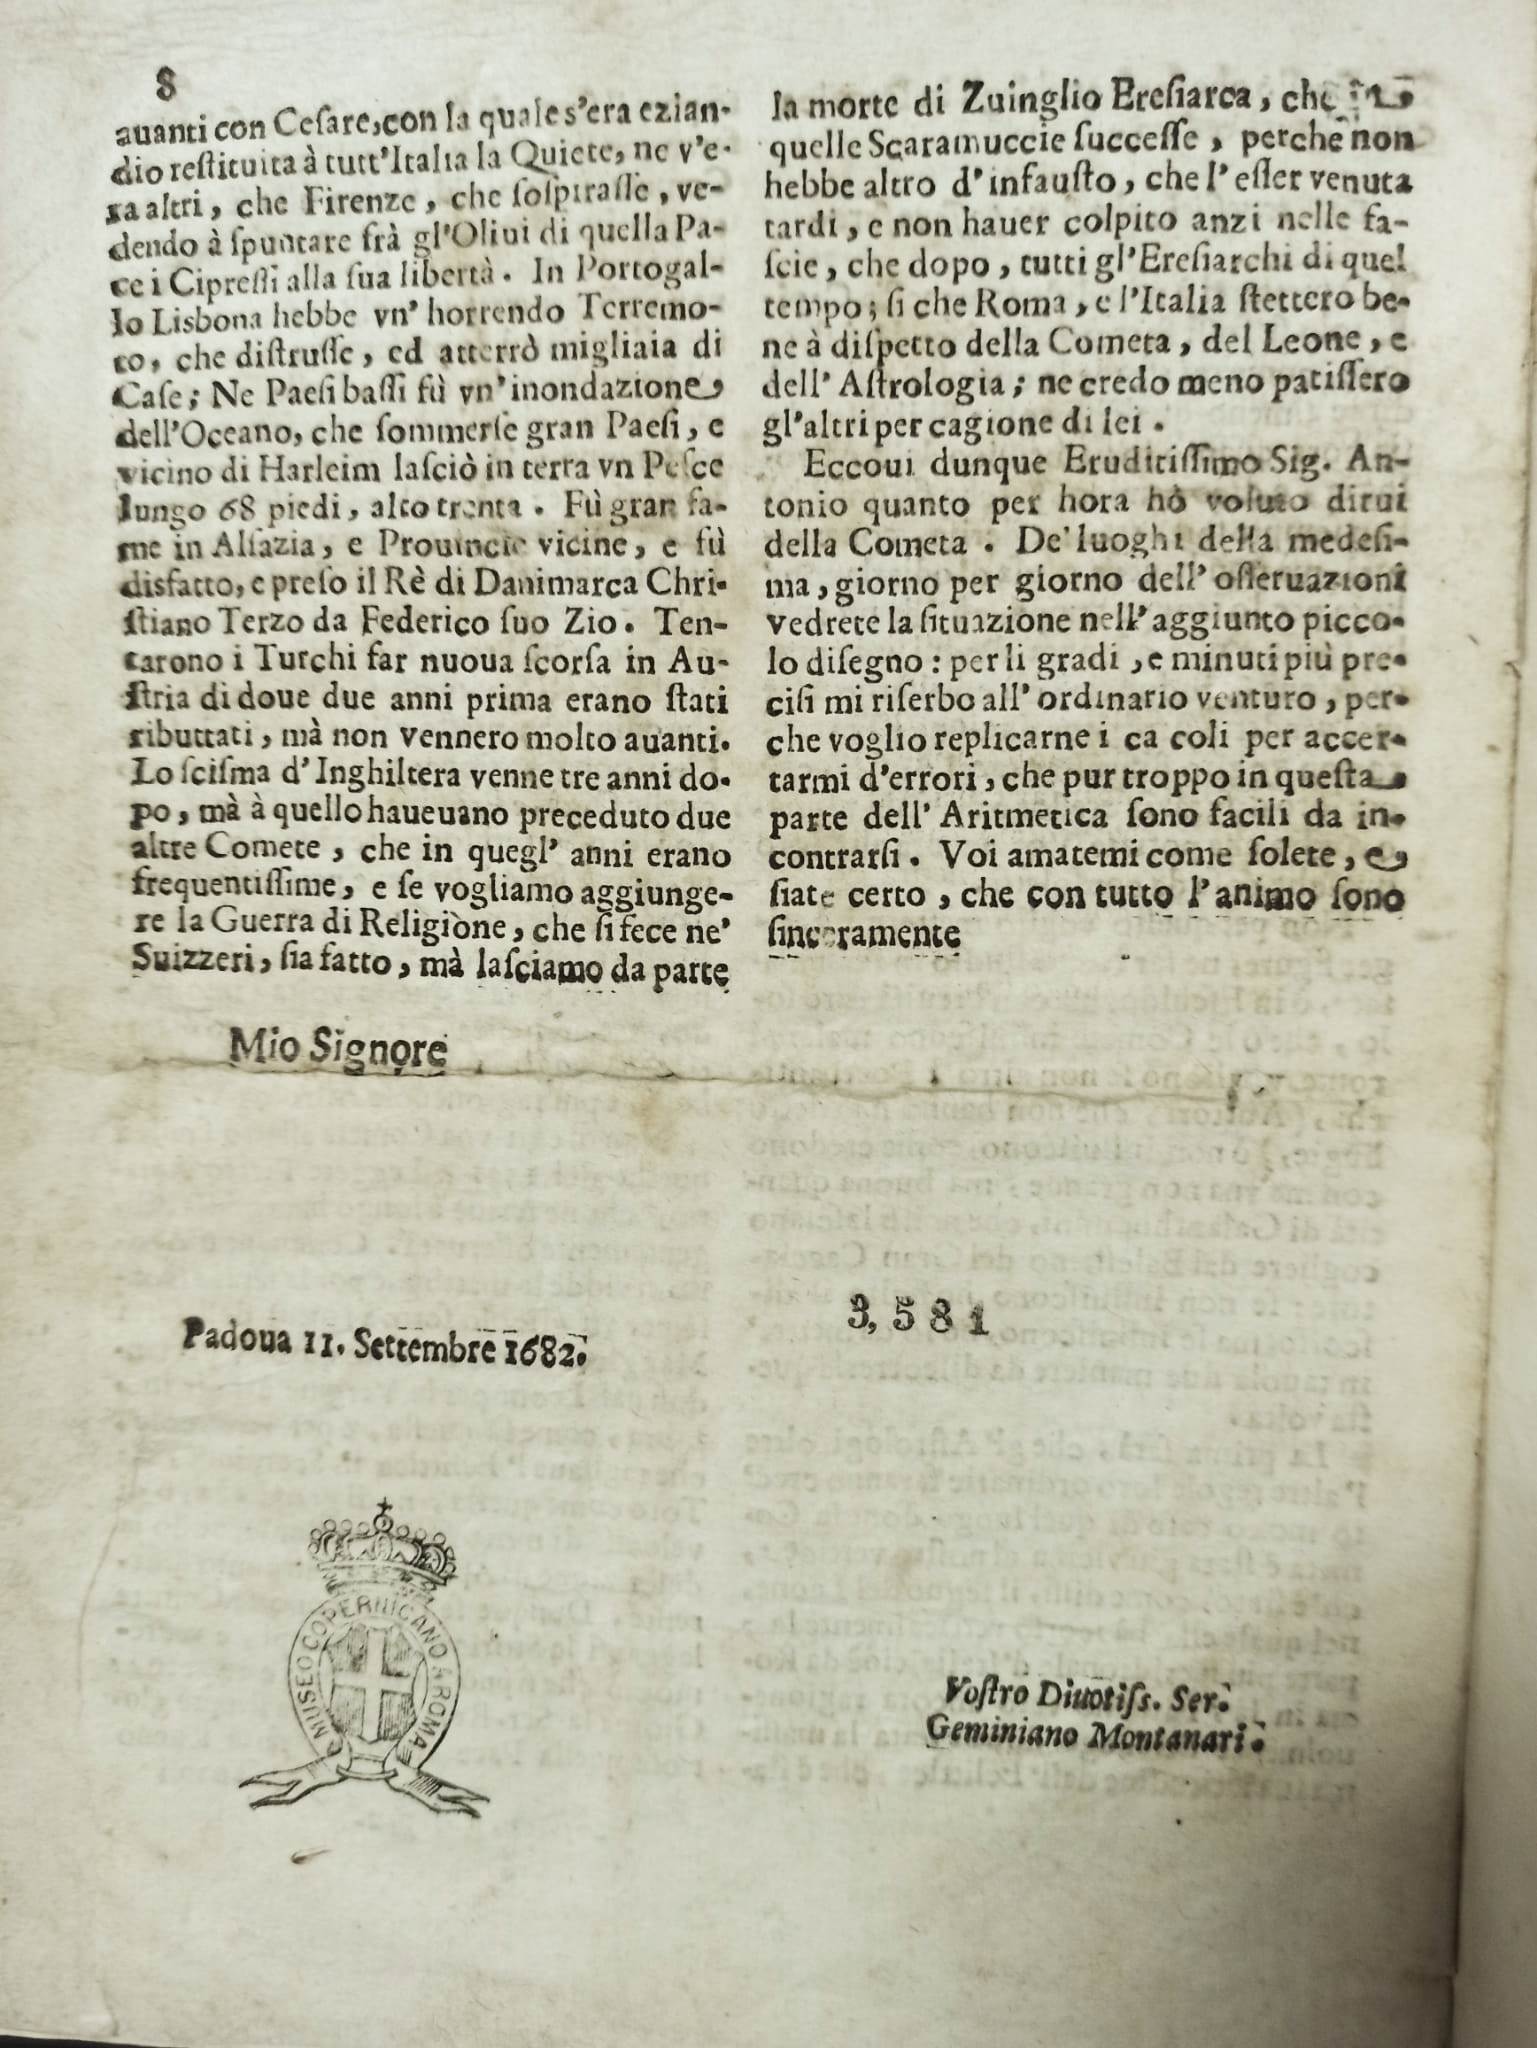 8
auanti con Ceſare, con la quale s'era ezian-
dio reſtituita à tutt'Italia la Quiete, ne v'e-
ra altri, che Firenze, che ſoſpiraſſe, ve-
dendo à ſpuntare frà gl'Oliui di quella Pa-
ce i Cipreſſi alla ſua libertà. In Portogal-
lo Lisbona hebbe vn' horrendo Terremo-
to, che diſtruſſe, ed atterrò migliaia di
Caſe; Ne Paeſi baſſi fù vn' inondazione,
dell'Oceano, che ſommerſe gran Paeſi, e
vicino di Harleim laſciò in terra vn Peſce
lungo 68 piedi, alto trenta. Fù gran fa-
me in Alſazia, e Prouincie vicine, e fù
disfatto, e preſo il Rè di Danimarca Chri-
ſtiano Terzo da Federico ſuo Zio. Ten-
tarono i Turchi far nuoua ſcorſa in Au-
ſtria di doue due anni prima erano ſtati
ributtati, mà non vennero molto auanti.
Lo ſciſma d'Inghiltera venne tre anni do-
po, mà à quello haueuano preceduto due
altre Comete, che in quegl' anni erano
frequentiſſime, e ſe vogliamo aggiunge-
re la Guerra di Religione, che ſi fece ne'
Suizzeri, ſia fatto, mà laſciamo da parte
la morte di Zuinglio Ereſiarca, che in
quelle Scaramuccie ſucceſſe, perche non
hebbe altro d'infauſto, che l'eſſer venuta
tardi, e non hauer colpito anzi nelle fa-
ſcie, che dopo, tutti gl'Ereſiarchi di quel
tempo; ſi che Roma, e l'Italia ſtettero be-
ne à diſpetto della Cometa, del Leone, e
dell' Aſtrologia; ne credo meno patiſſero
gl'altri per cagione di lei.
Eccoui dunque Eruditiſſimo Sig. An-
tonio quanto per hora hò voluto dirui
della Cometa. De' luoghi della medeſi-
ma, giorno per giorno dell' oſſeruazioni
vedrete la ſituazione nell' aggiunto picco-
lo diſegno: per li gradi, e minuti più pre-
ciſi mi riſerbo all' ordinario venturo, per-
che voglio replicarne i ca coli per accer-
tarmi d'errori, che pur troppo in queſta
parte dell' Aritmetica ſono facili da in-
contrarſi. Voi amatemi come ſolete, e
ſiate certo, che con tutto l'animo ſono
ſinceramente
Mio Signore
3,581
Padoua 11. Settembre 1682.
MUSEO COPERNICANO & ROMA
Voſtro Diuotiſs. Ser.
Geminiano Montanari.